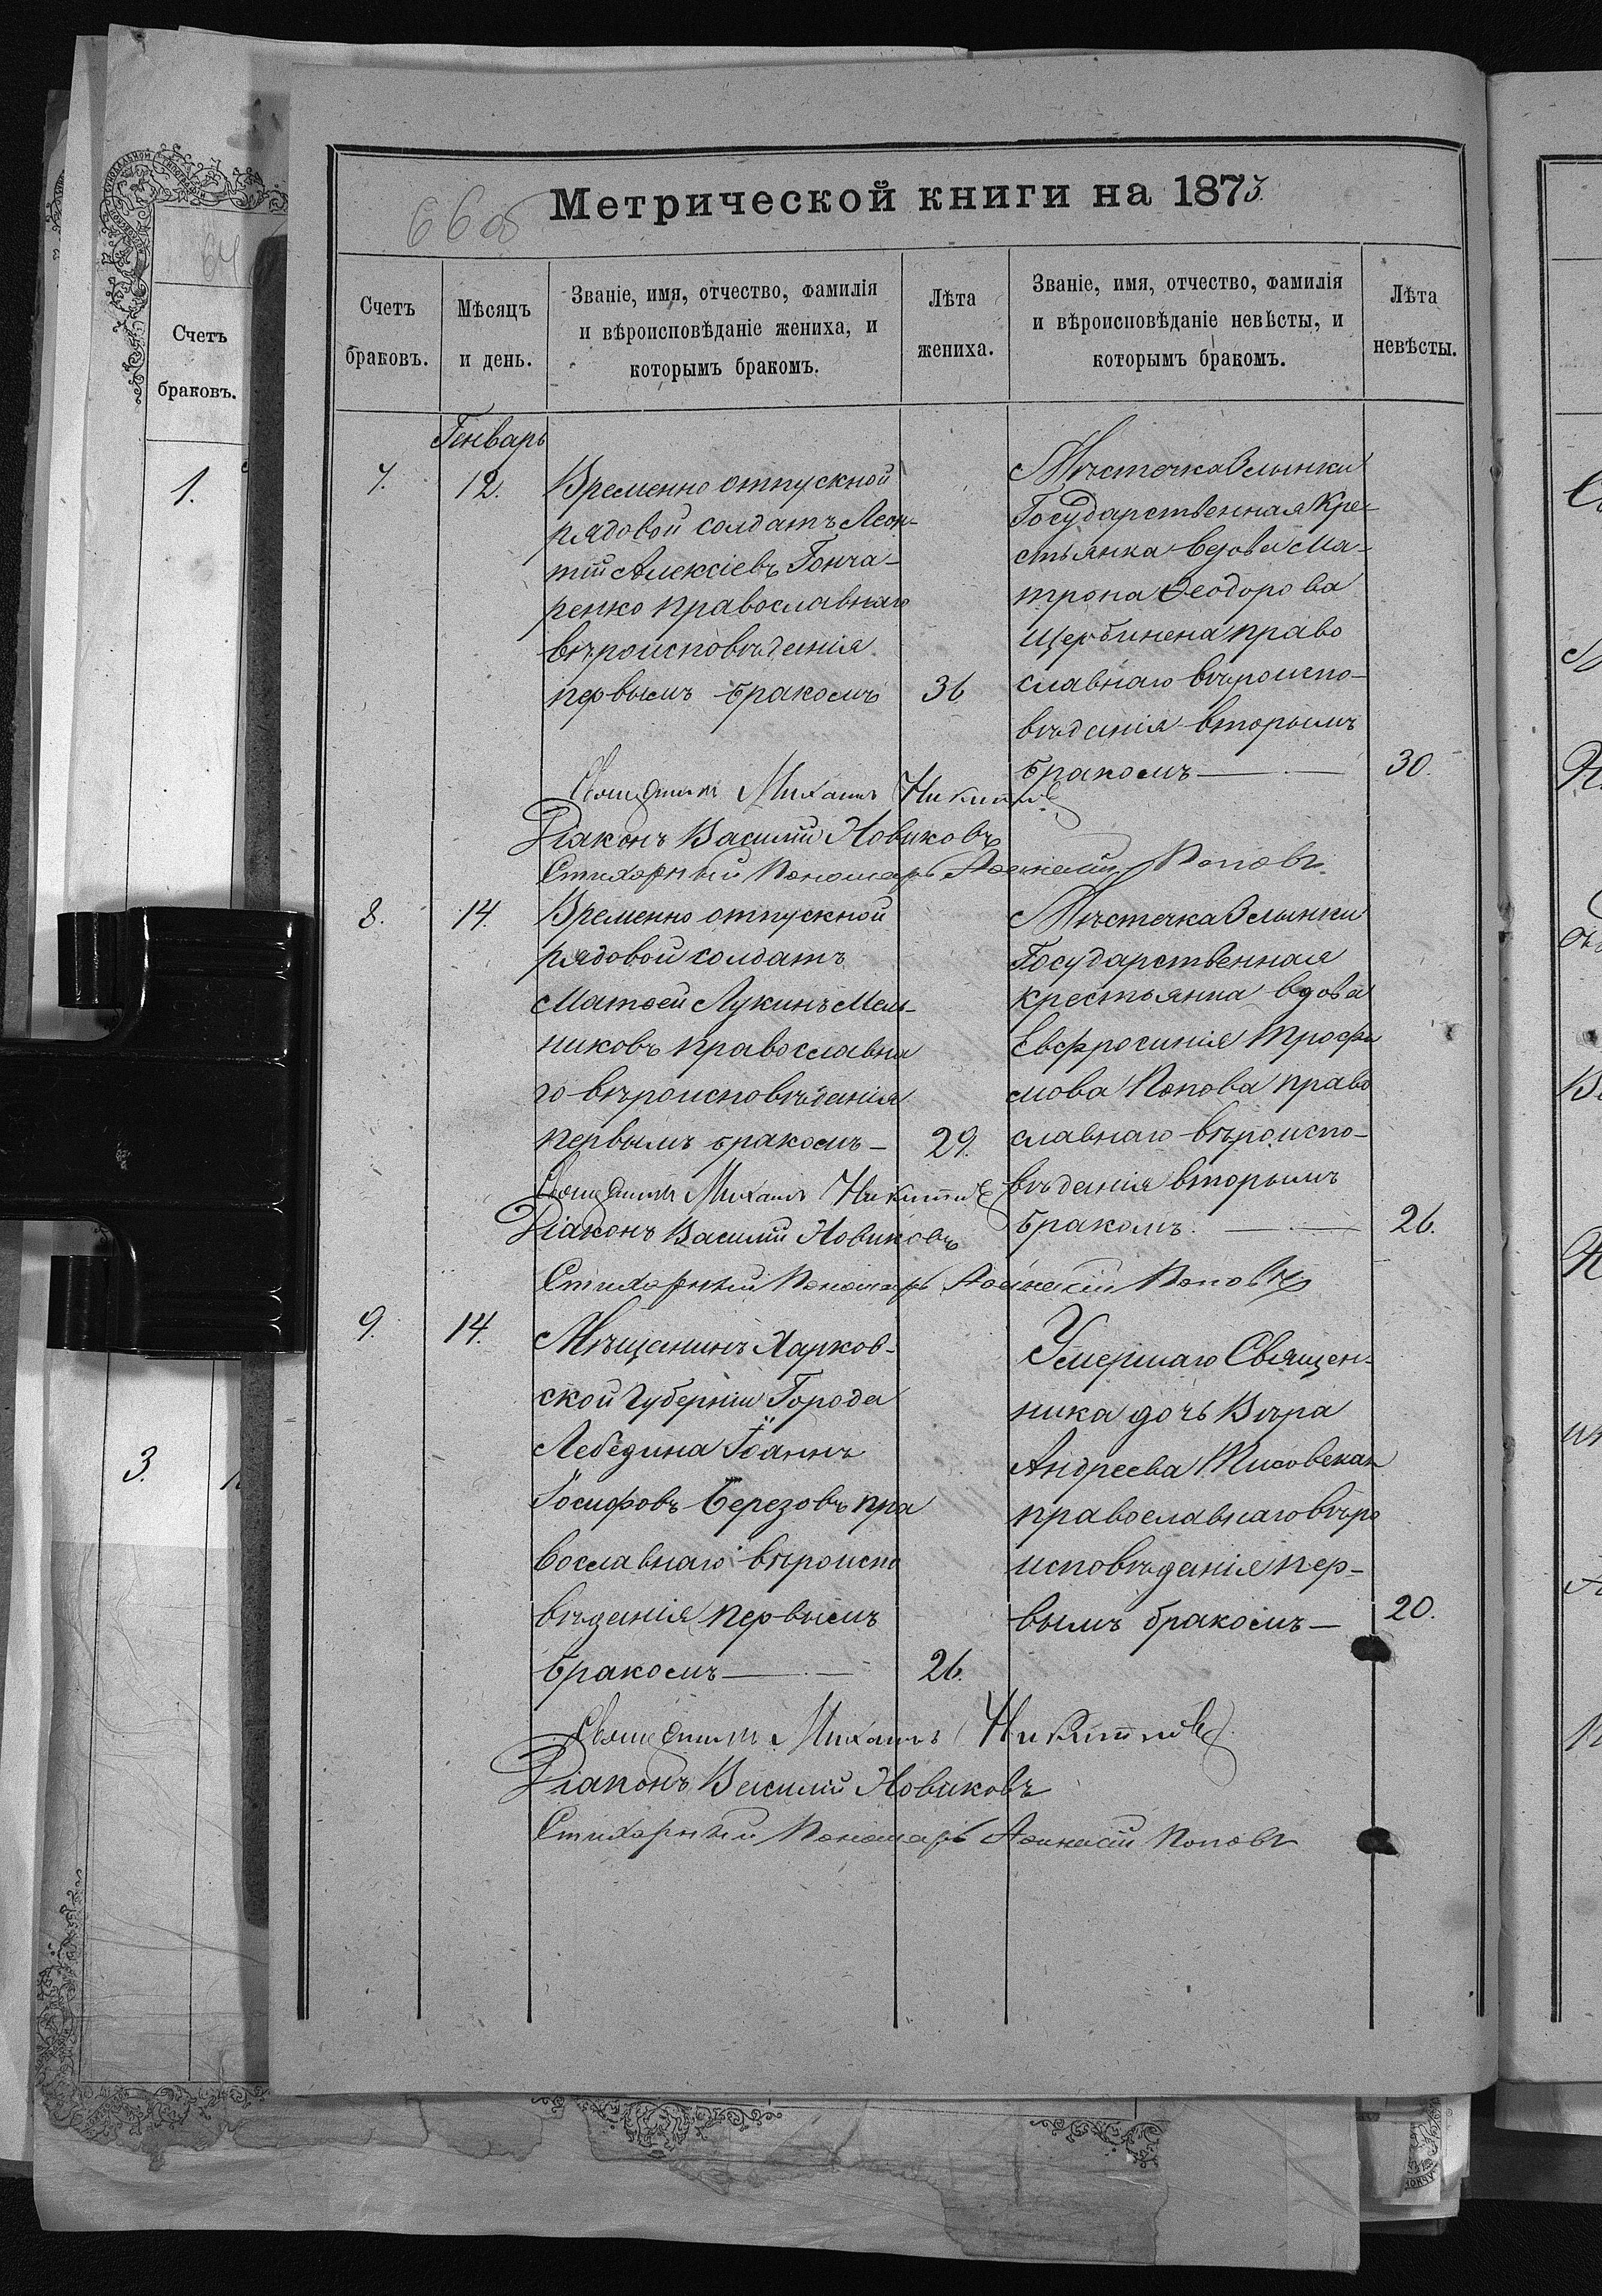 66об
Метрической книги на 1873.
Счетъ браковъ.
Мѣсяцъ и день.
Званіе, имя, отчество, фамилія
и вѣроисповѣданіе жениха, и
которымъ бракомъ.
Лѣта жениха.
Званіе, имя, отчество, фамилія
и вѣроисповѣданіе невѣсты, и
которымъ бракомъ.
Лѣта невѣсты.
Генварь
7.
12.
Временно отпускной
рядовой солдатъ Леон-
тій Алексіевъ Гонча-
ренко православнаго
вѣроисповѣданія
первымъ бракомъ
36
Мѣстечка Злынки
Государственная Кре-
стьянка вдова Ма-
трона Ѳеодорова
Щербинена право
славнаго вѣроиспо-
вѣданія вторымъ
бракомъ
30.
Священникъ Михаилъ Никитинъ
Діаконъ Василій Новиковъ
Стихарный Пономарь Аѳанасій Поповъ.
8.
14.
Временно отпускной
рядовой солдатъ
Матѳей Лукинъ Мель-
никовъ православна
го вѣроисповѣданія
первымъ бракомъ-
29.
Мѣстечка Злынки
Государственная
крестьянка вдова
Евфросинія Трофи
мова Попова право
славнаго вѣроиспо-
вѣданія вторымъ
бракомъ.
26.
Священникъ Михаилъ Никитинъ
Діаконъ Василій Новиковъ
Стихарный Пономарь Аѳанасій Поповъ
9.
14.
Мѣщанинъ Харков-
ской Губерніи Города
Лебедина Іоаннъ
Іосифовъ Березовъ пра
вославнаго вѣроиспо
вѣданія первымъ
бракомъ
26.
Умершаго Священ-
ника дочь Вѣра
Андреева
православнаго вѣро
исповѣданія пер-
вымъ бракомъ-
20.
Священникъ Михаилъ Никитинъ
Діаконъ Василій Новиковъ
Стихарный Пономарь Аѳанасій Поповъ
64
Счетъ
браковъ.
1.
3.